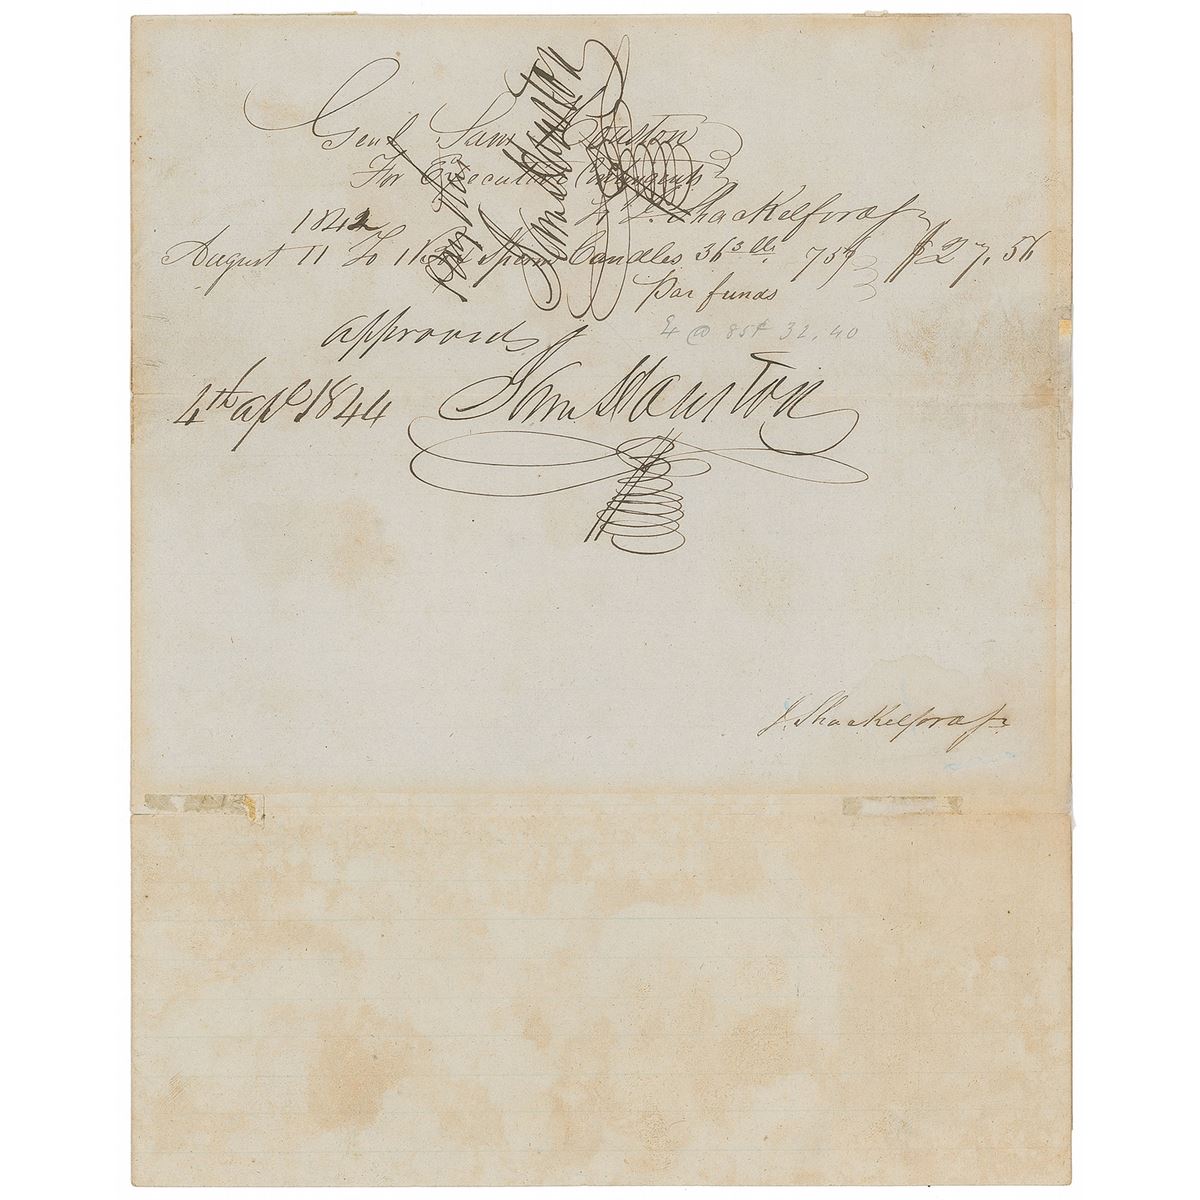 Genl Sam Houston
For Executive
To J. Shackelford Jr
1842
August 11 To 1 Box Sperm Candles 36 3/4 lbs 75¢ $27,56
Par funds
@ 85¢ 32,40
approved
4th apl 1844 Sam Houston
Sam Houston
J. Shackelford Jr